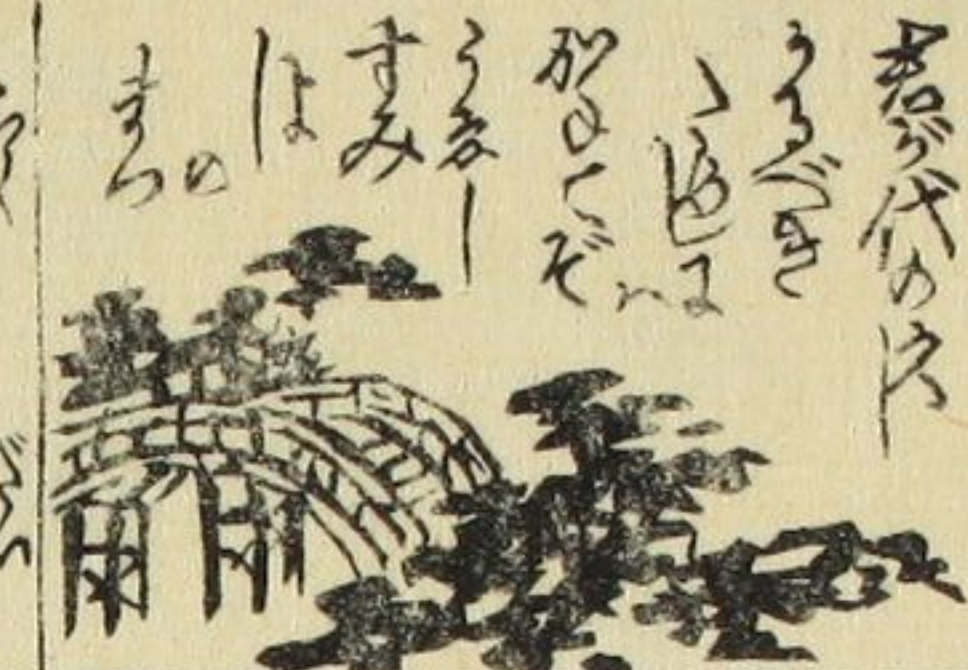 君が代の久し
かるべき
ためしに
や
かねてぞ
うゑし
すみ
よし
の
まつ